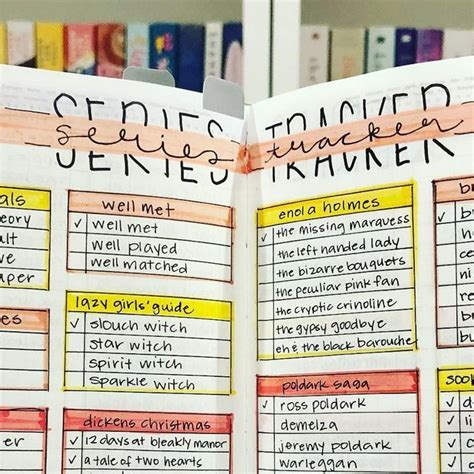 SERIES TRACKER
series tracker
als
eory
alt
ve
aper
es
er
well met
✓ well met
well played
well matched
lazy girls' guide
✓ slouch witch
star witch
spirit witch
sparkle witch
dickens christmas
✓ 12 days at bleakly manor
✓ a tale of two hearts
enola holmes
✓ the missing marquess
the left handed lady
the bizarre bouquets
the peculiar pink fan
the cryptic crinoline
the gypsy goodbye
eh & the black barouche
poldark saga
✓ ross poldark
demelza
jeremy poldark
warleggan